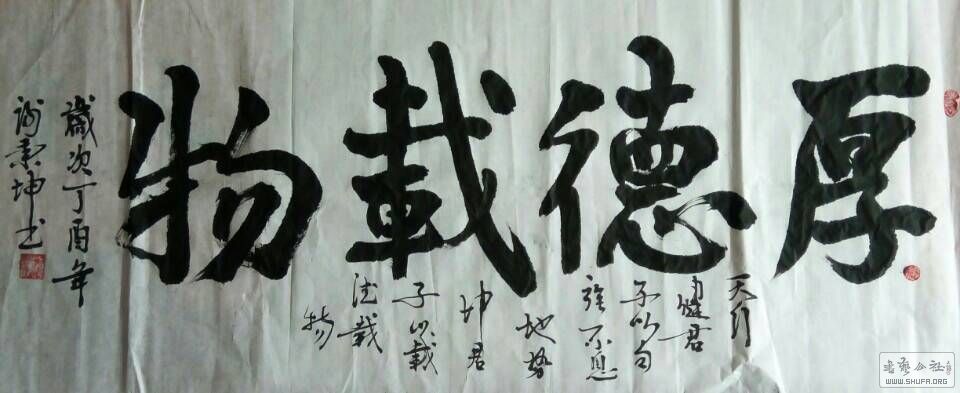 厚德載物
天行
健君
子以自
強不息
地勢
坤君
子以載
德載
物
歲次丁酉年
秉坤书
书艺公社
WWW.SHUFA.ORG